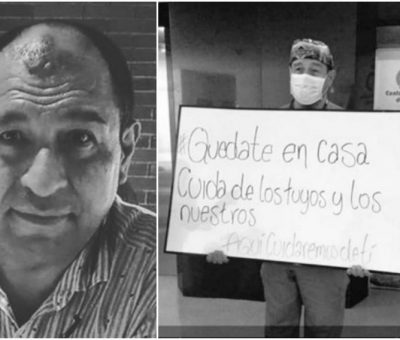 #Quedate en casa
Cuida de los tuyos y los
nuestros
Aquí Cuidaremos de ti